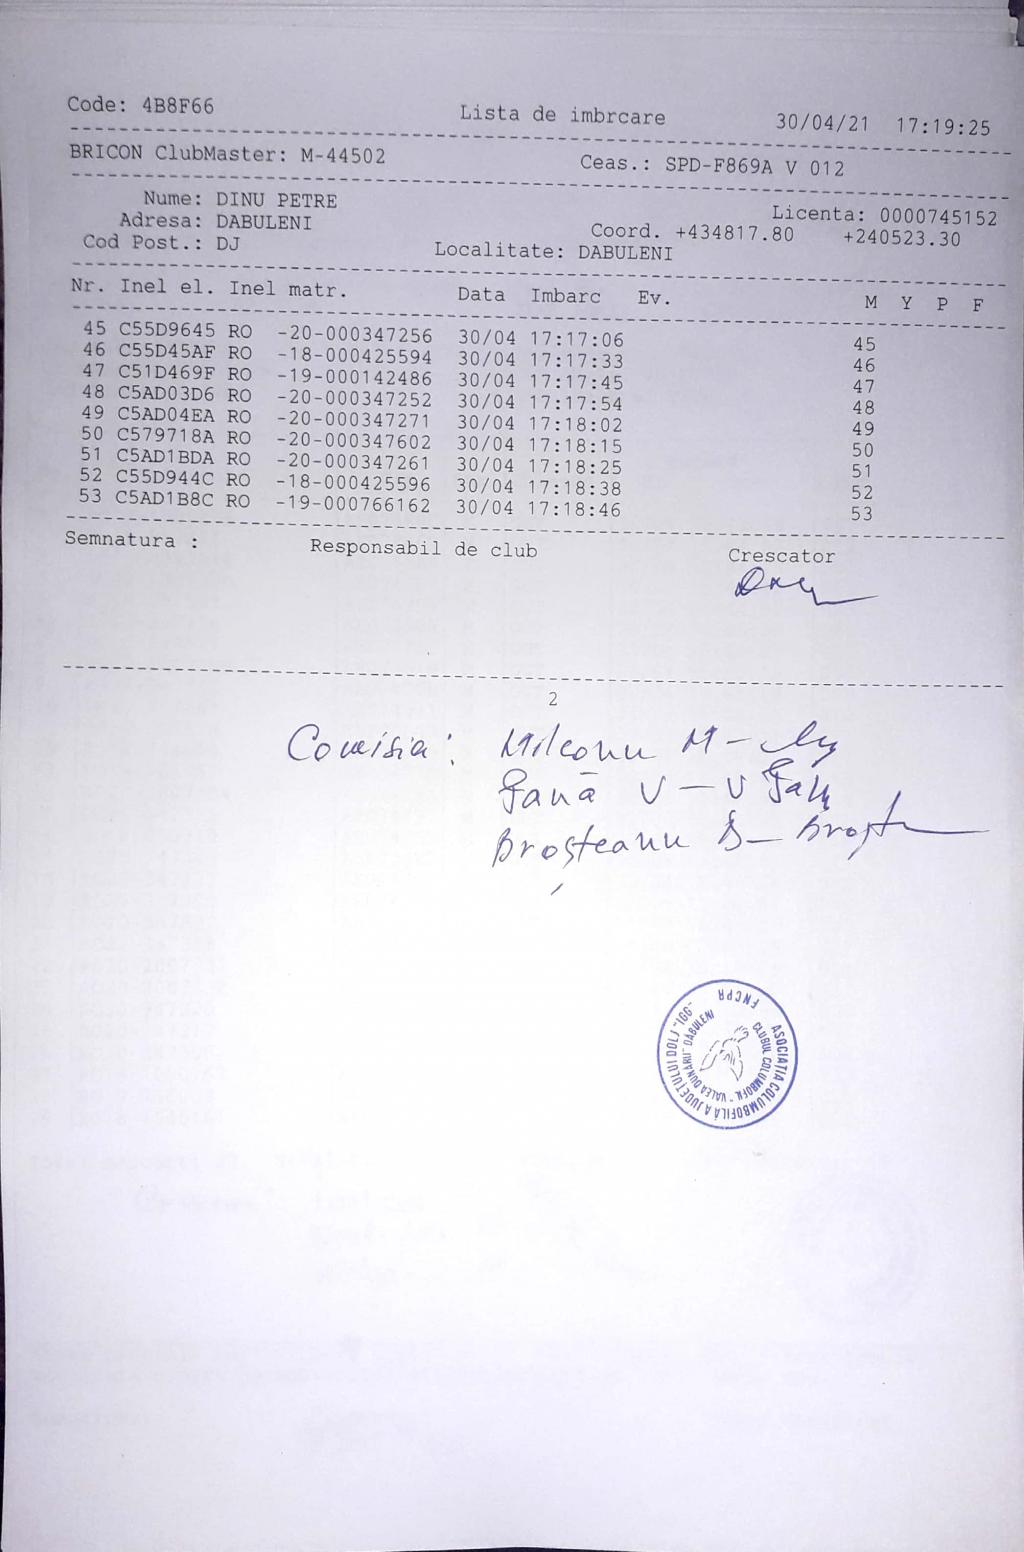 Code: 4B8F66 Lista de imbrcare 30/04/21 17:19:25
BRICON ClubMaster: M-44502 Ceas.: SPD-F869A V 012
Nume: DINU PETRE Licenta: 0000745152
Adresa: DABULENI Coord. +434817.80 +240523.30
Cod Post.: DJ Localitate: DABULENI
Nr. Inel el. Inel matr. Data Imbarc Ev. M Y P F
45 C55D9645 RO -20-000347256 30/04 17:17:06 45
46 C55D45AF RO -18-000425594 30/04 17:17:33 46
47 C51D469F RO -19-000142486 30/04 17:17:45 47
48 C5AD03D6 RO -20-000347252 30/04 17:17:54 48
49 C5AD04EA RO -20-000347271 30/04 17:18:02 49
50 C579718A RO -20-000347602 30/04 17:18:15 50
51 C5AD1BDA RO -20-000347261 30/04 17:18:25 51
52 C55D944C RO -18-000425596 30/04 17:18:38 52
53 C5AD1B8C RO -19-000766162 30/04 17:18:46 53
Semnatura : Responsabil de club Crescator
2
Comisia: M -
V - V
Broșteanu B -
ASOCIAȚIA COLUMBOFILĂ A JUDEȚULUI DOLJ "IGG"
FNCPR
CLUBUL COLUMBOFIL "VALEA DUNĂRII" DABULENI